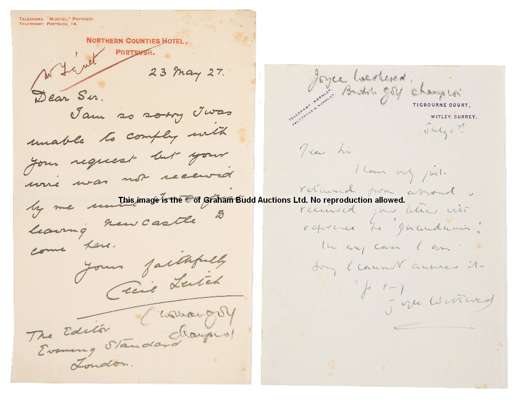 TELEGRAMS "HOTEL" PORTRUSH.
TELEPHONE: PORTRUSH, 14.
NORTHERN COUNTIES HOTEL,
PORTRUSH.
23 May 27.
Dear Sir.
I am so sorry I was
unable to comply with
your request but your
wire was not received
by me until
leaving Newcastle to
come here.
Yours faithfully
Cecil Leitch
Woman golf
Champion
The Editor
Evening Standard
London.
Joyce Wethered.
British Golf Champion
TIGBOURNE COURT,
WITLEY, SURREY.
July
Dear Sir
I have only just
returned from abroad &
received your letter with
reference to
In any case I am
sorry I cannot answer it.
Joyce Wethered
This image is the © of Graham Budd Auctions Ltd. No reproduction allowed.